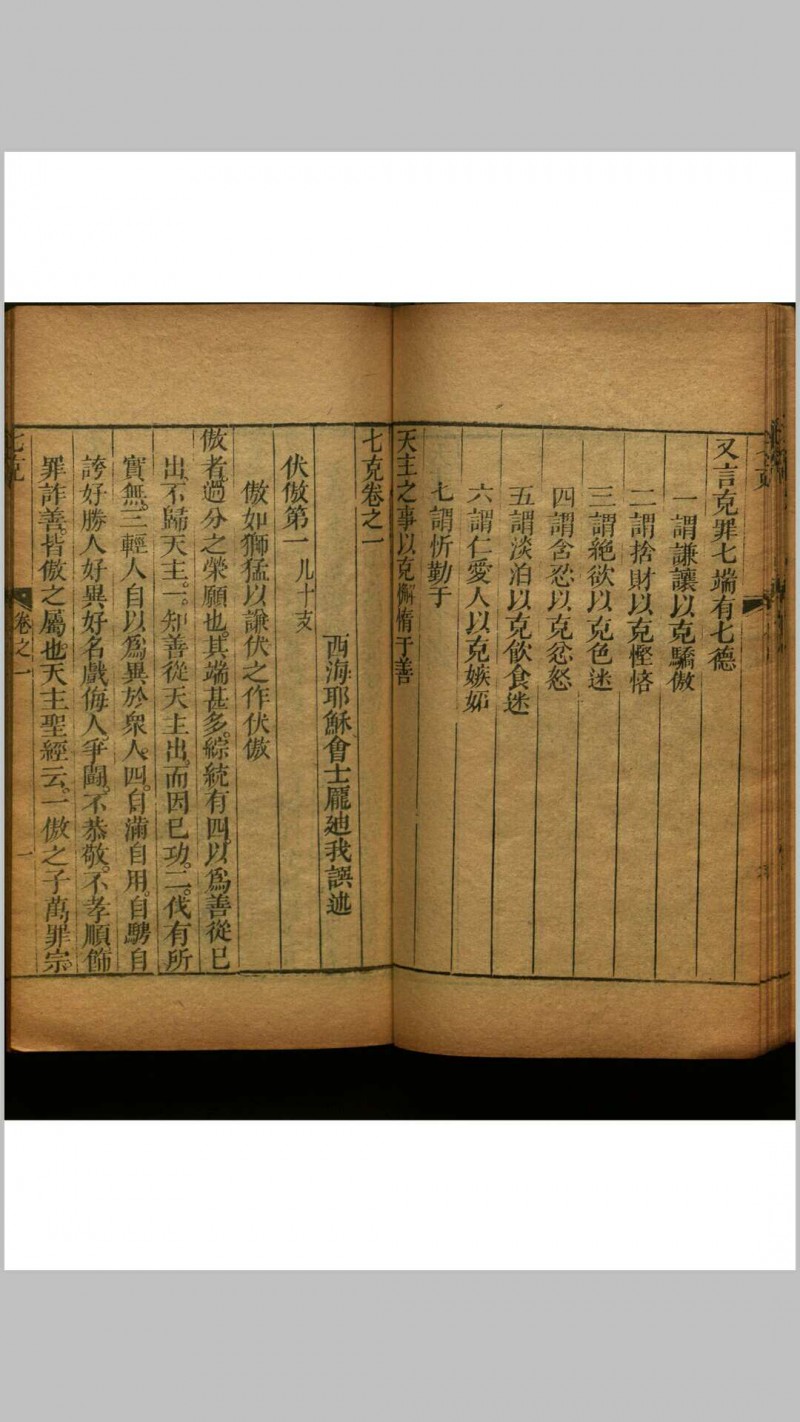 七克
又言克罪七端有七德
一謂謙讓以克驕傲
二謂捨財以克慳悋
三謂絕欲以克色迷
四謂含忍以克忿怒
五謂淡泊以克飲食迷
六謂仁愛人以克嫉妬
七謂忻勤于
天主之事以克懈惰于善
七克卷之一
西海耶穌會士龐廸我譔述
伏傲第一 凡十支
傲如獅猛以謙伏之作伏傲
傲者。過分之榮願也。其端甚多。綜統有四。以爲善從已
出。不歸天主。一。知善從天主出。而因已功。二。伐有所
實無。三輕人自以爲異於衆人。四。自滿自用。自騁自
誇好勝人好異好名戲侮人。爭鬪。不恭敬。不孝順飾
罪詐善。皆傲之屬也。天主聖經云。一傲之子萬罪宗。
七克
卷之一
一